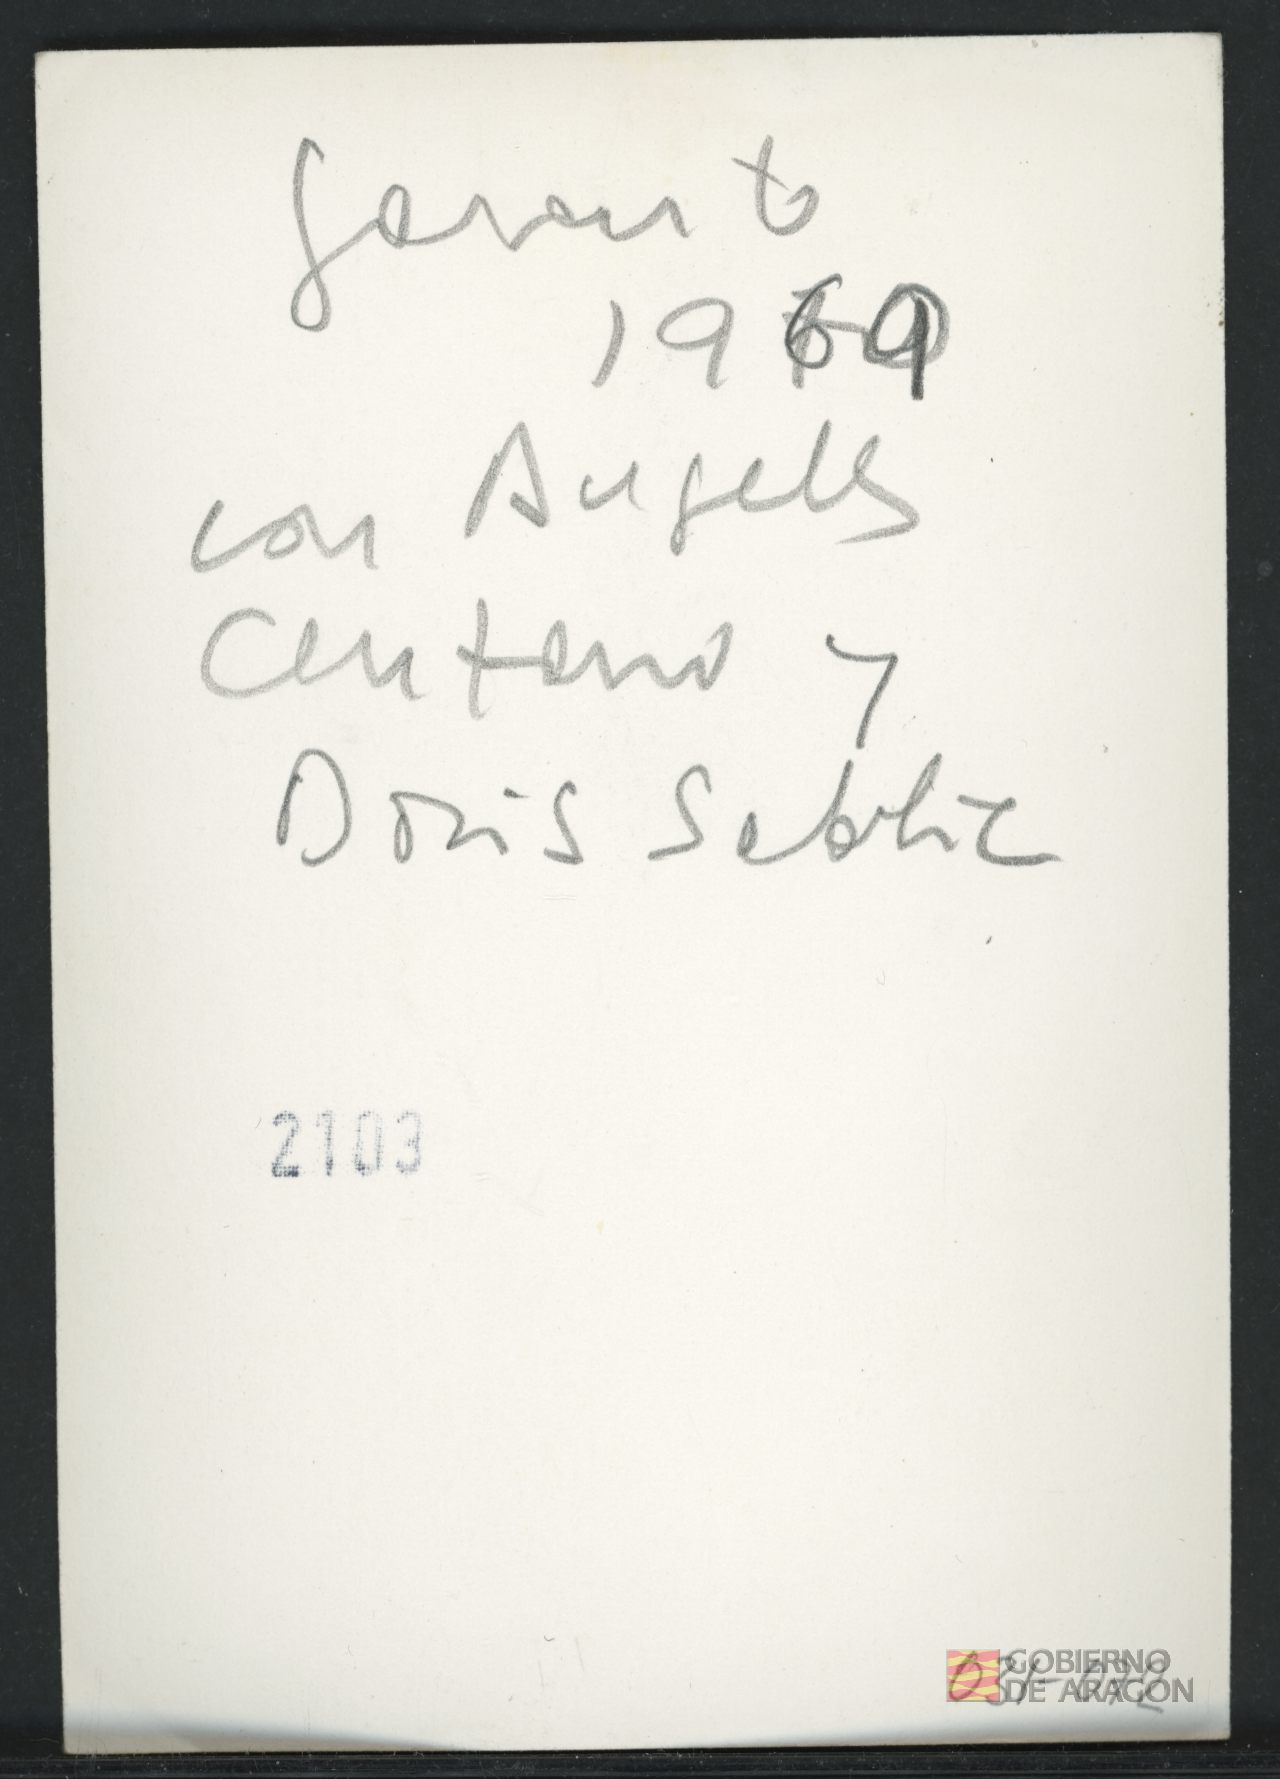 1969
con Angeles
Centeno y
Doris Schlic
2103
GOBIERNO
DE ARAGON